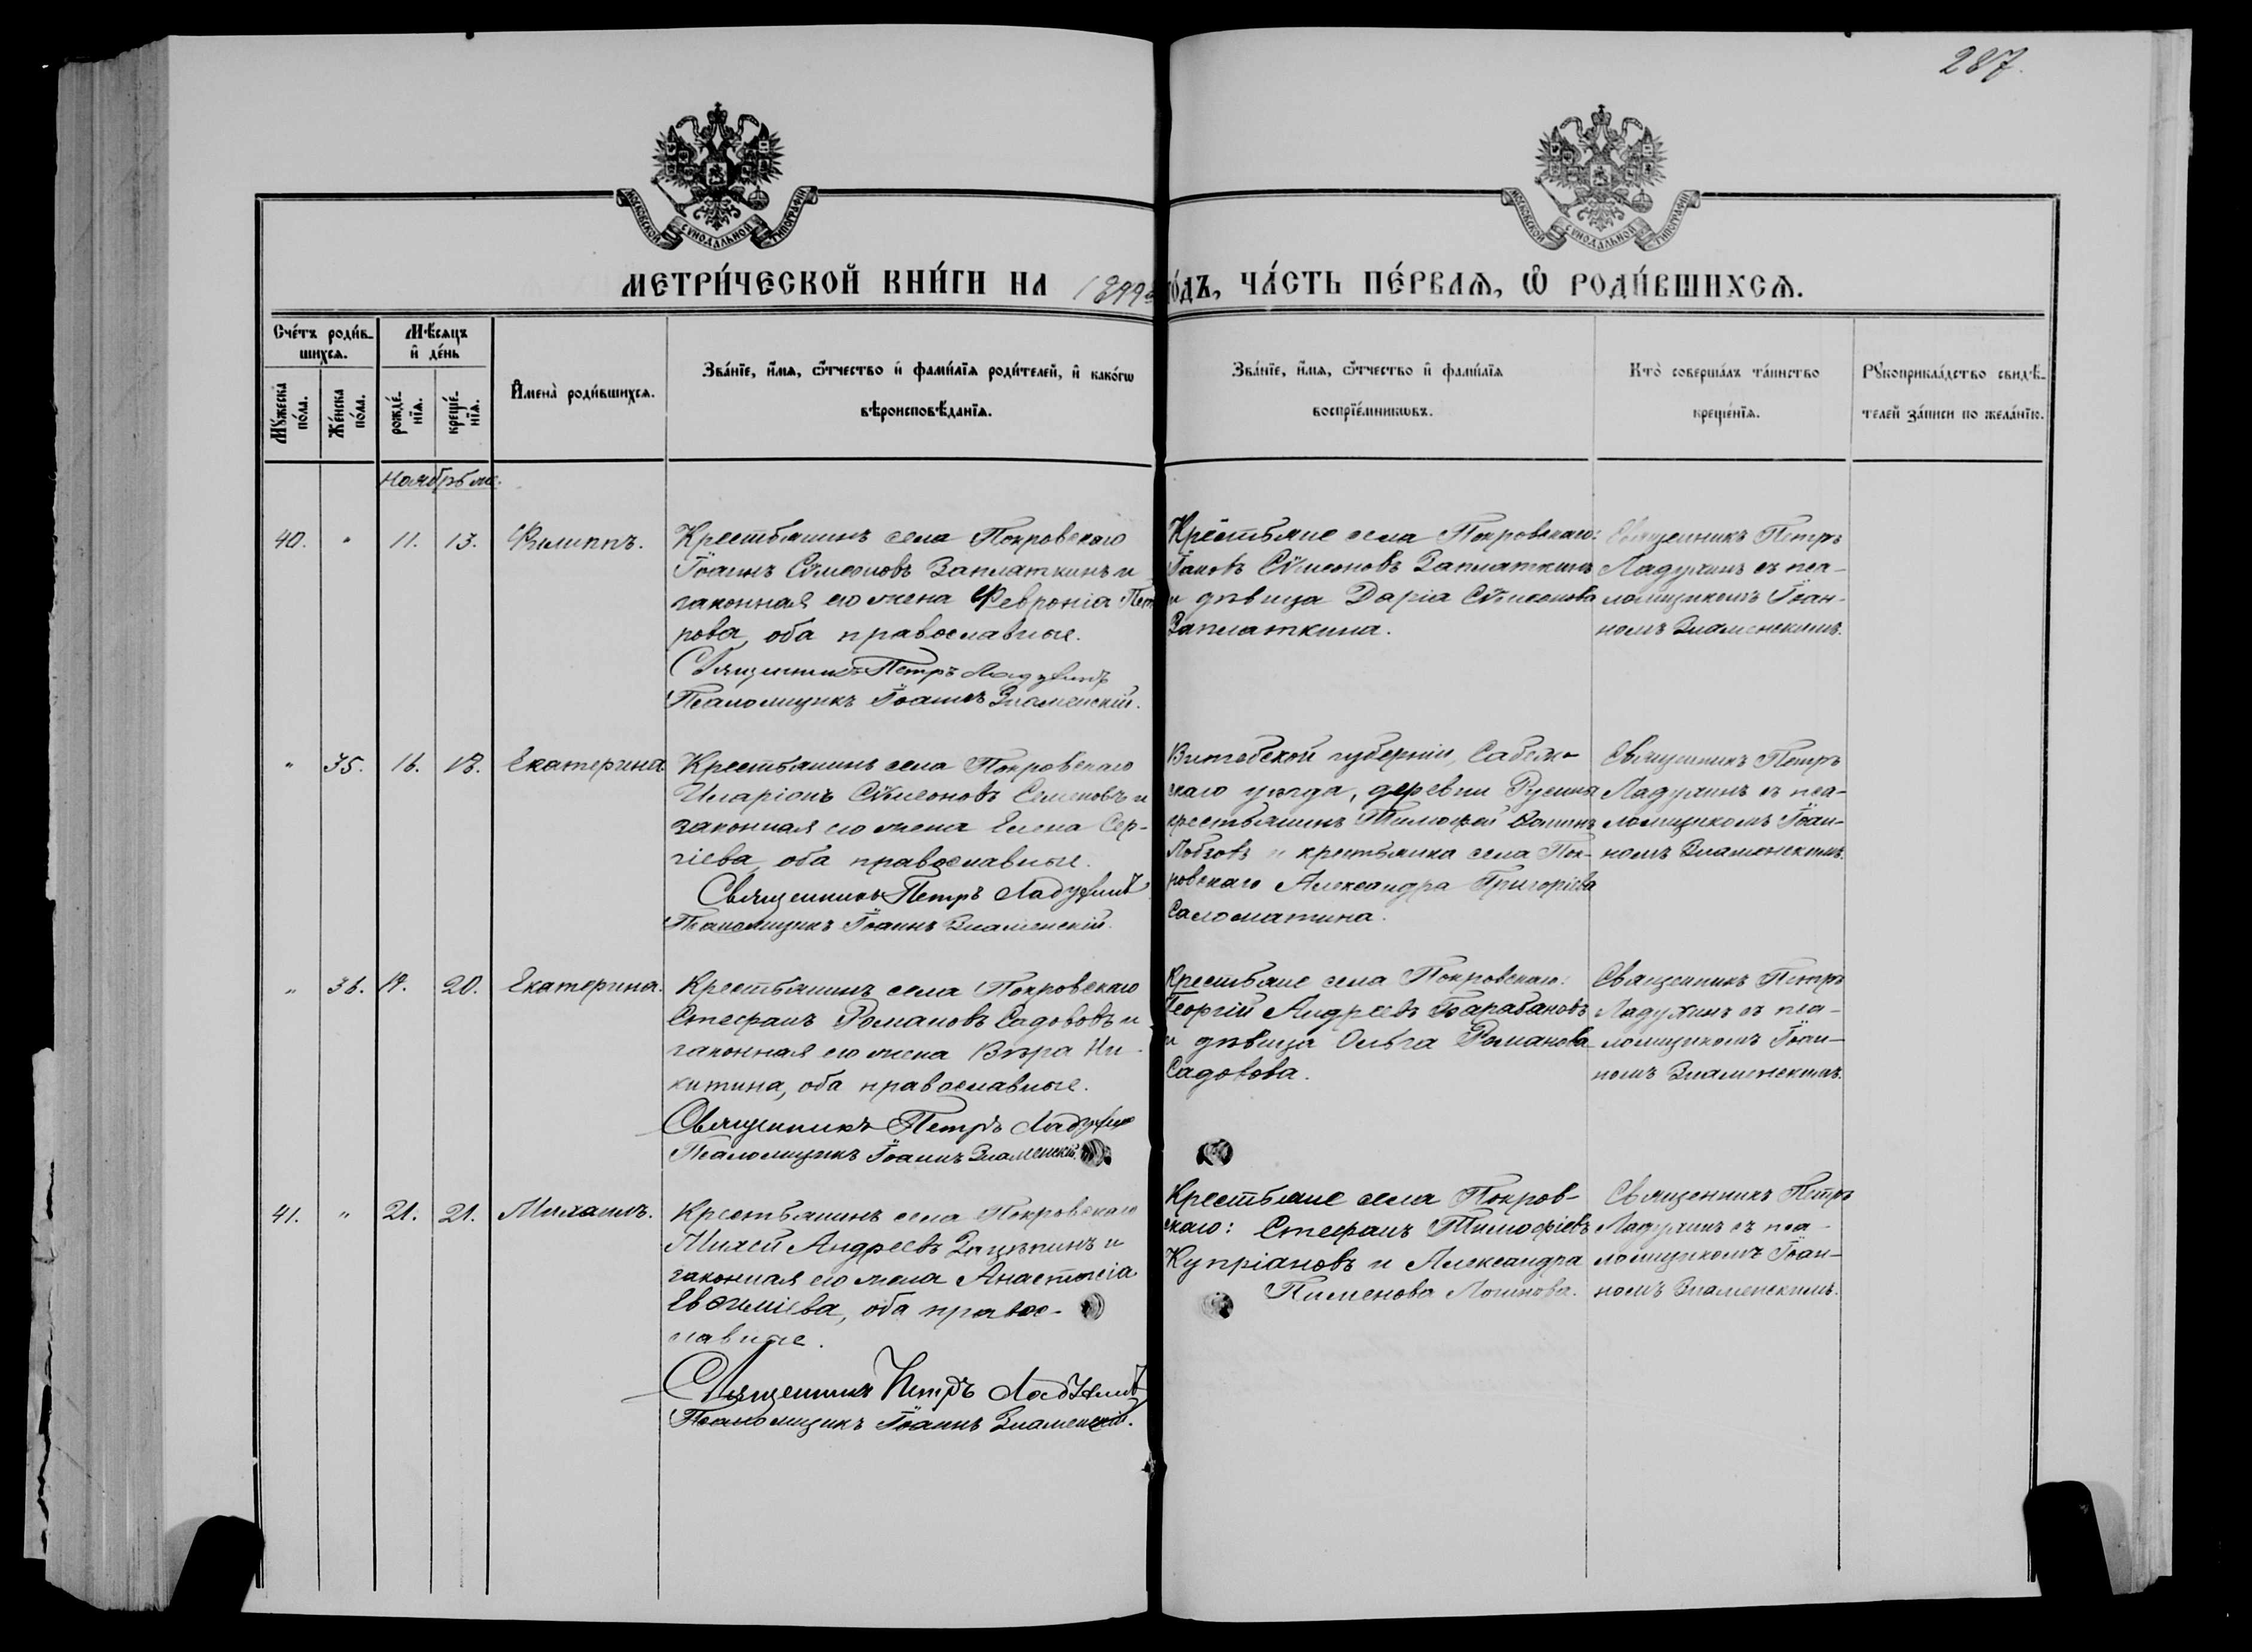 287.
МОСКОВСКОЙ СѴНОДАЛЬНОЙ ТИПОГРАФІИ
МОСКОВСКОЙ СѴНОДАЛЬНОЙ ТИПОГРАФІИ
МЕТРИ́ЧЕСКОЙ КНИ́ГИ НА 1899 го́дъ, ЧА́СТЬ ПЕ́РВАѦ, Ѡ҆ РОДИ́ВШИХСѦ.
Сче́тъ роди́вшихсѧ.
Мѣ́сѧцъ и҆ де́нь
Мꙋ́жеска по́ла.
Же́нска по́ла.
рожде́нїѧ.
креще́нїѧ.
И҆мена̀ роди́вшихсѧ.
Зва́нїе, и҆́мѧ, ѻ҆́тчество и҆ фами́лїѧ роди́телей, и҆ како́гѡ
вѣроисповѣ́данїѧ.
Зва́нїе, и҆́мѧ, ѻ҆́тчество и҆ фами́лїѧ
воспрїе́мникѡвъ.
Кто̀ соверша́лъ та́инство
креще́нїѧ.
Рꙋкоприкла́дство свидѣ́телей за́писи по жела́нїю.
Ноября м.
40. " 11. 13. Филиппъ.
Крестьянинъ села Покровскаго
Іоаннъ Сѵмеоновъ Заплаткинъ и
законная его жена Февронія Пет
рова, оба православные.
Священникъ Петръ Ладухинъ
Псаломщикъ Іоаннъ Знаменскій.
Крестьяне села Покровскаго:
Іаковъ Сѵмеоновъ Заплаткинъ
и дѣвица Дарія Сѵмеонова
Заплаткина.
Священникъ Петръ
Ладухинъ съ пса-
ломщикомъ Іоан-
номъ Знаменскимъ.
" 35. 16. 18. Екатерина
Крестьянинъ села Покровскаго
Иларіонъ Сѵмеоновъ Семеновъ и
законная его жена Елена Сер-
гіева, оба православные.
Священникъ Петръ Ладухинъ
Псаломщикъ Іоаннъ Знаменскій.
Витебской губерніи, Себеж-
скаго уѣзда, деревни
крестьянинъ Тимофей
и крестьянка села Пок-
ровскаго Александра Григоріева
Саломатина.
Священникъ Петръ
Ладухинъ съ пса-
ломщикомъ Іоан-
номъ Знаменскимъ.
" 36. 19. 20. Екатерина.
Крестьянинъ села Покровскаго
Стефанъ Романовъ Садововъ и
законная его жена Вѣра Ни-
китина, оба православные.
Священникъ Петръ Ладухинъ
Псаломщикъ Іоаннъ Знаменскій.
Крестьяне села Покровскаго:
Георгій Андреевъ Барабановъ
и дѣвица Ольга Романова
Садовова.
Священникъ Петръ
Ладухинъ съ пса-
ломщикомъ Іоан-
номъ Знаменскимъ.
41. " 21. 21. Михаилъ.
Крестьянинъ села Покровскаго
Михей Андреевъ Зацѣпинъ и
законная его жена Анастасіа
Евѳиміева, оба правос-
лавные.
Священникъ Петръ Ладухинъ
Псаломщикъ Іоаннъ Знаменскій.
Крестьяне села Покров-
скаго: Стефанъ Тимофіевъ
Купріановъ и Александра
Пименова Логинова.
Священникъ Петръ
Ладухинъ съ пса-
ломщикомъ Іоан-
номъ Знаменскимъ.